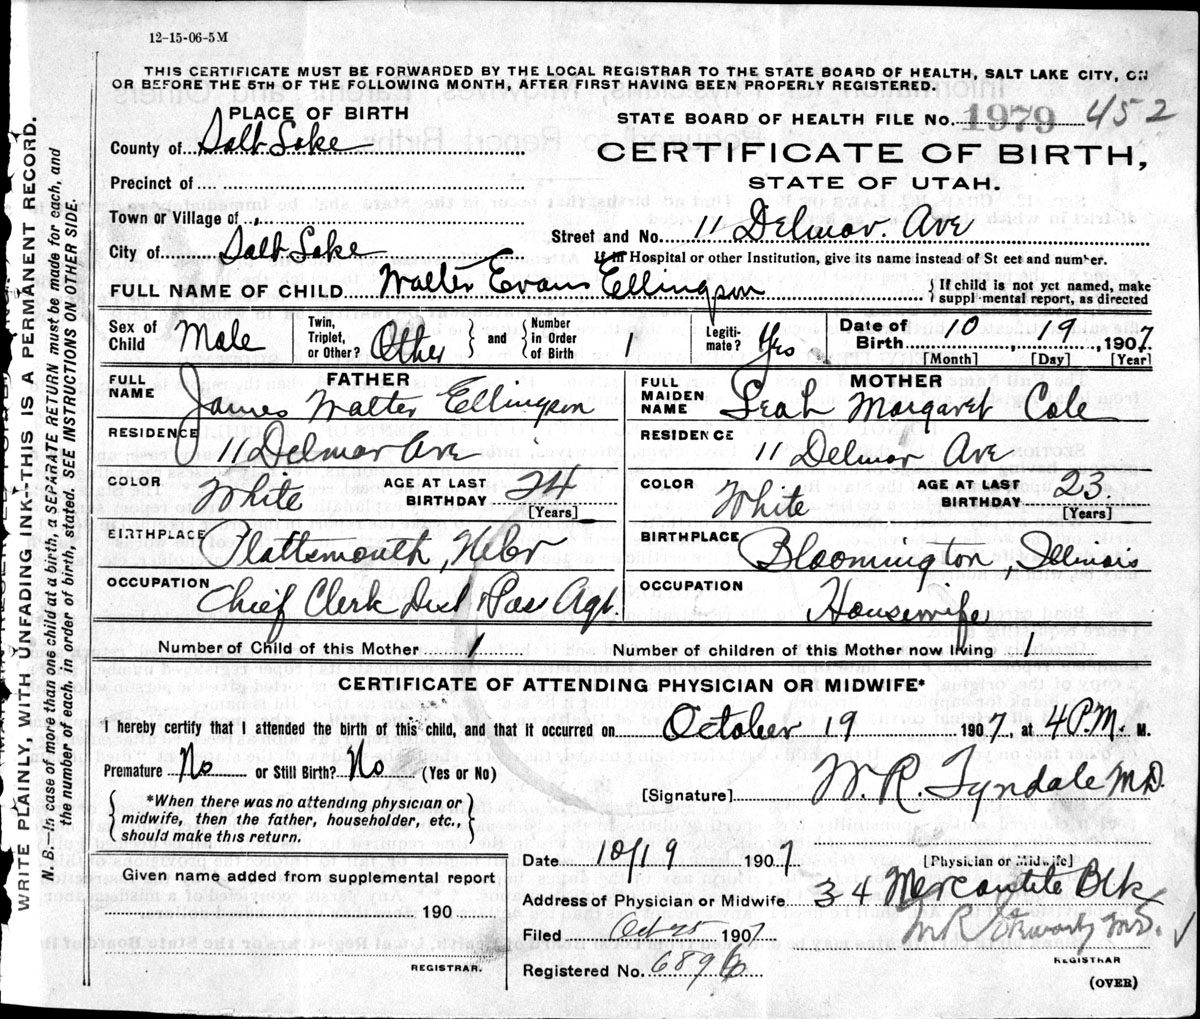 12-15-06-5M
THIS CERTIFICATE MUST BE FORWARDED BY THE LOCAL REGISTRAR TO THE STATE BOARD OF HEALTH, SALT LAKE CITY, ON
OR BEFORE THE 5TH OF THE FOLLOWING MONTH, AFTER FIRST HAVING BEEN PROPERLY REGISTERED.
PLACE OF BIRTH
STATE BOARD OF HEALTH FILE No. 1979 452
County of Salt Lake
CERTIFICATE OF BIRTH,
Precinct of
STATE OF UTAH.
Town or Village of
Street and No. 11 Delmar Ave
City of Salt Lake
If in Hospital or other Institution, give its name instead of St eet and number.
FULL NAME OF CHILD Walter Evans Ellingson
If child is not yet named, make
suppl mental report, as directed
Sex of Child Male
Twin, Triplet, or Other? Other
and
Number in Order of Birth 1
Legitimate? Yes
Date of Birth 10, 19, 1907.
[Month] [Day] [Year]
FATHER
FULL NAME James Walter Ellingson
MOTHER
FULL MAIDEN NAME Leah Margaret Cole
RESIDENCE 11 Delmar Ave
RESIDENCE 11 Delmar Ave
COLOR White
AGE AT LAST BIRTHDAY 24
[Years]
COLOR White
AGE AT LAST BIRTHDAY 23.
[Years]
BIRTHPLACE Plattsmouth, Nebr
BIRTHPLACE Bloomington, Illinois
OCCUPATION Chief Clerk Dist Pas Agt.
OCCUPATION Housewife
Number of Child of this Mother 1
Number of children of this Mother now living 1
CERTIFICATE OF ATTENDING PHYSICIAN OR MIDWIFE*
I hereby certify that I attended the birth of this child, and that it occurred on October 19 1907, at 4 P.M. M.
Premature No or Still Birth? No (Yes or No)
[Signature] W. R. Tyndale M.D.
*When there was no attending physician or
midwife, then the father, householder, etc.,
should make this return.
Date 10/19 1907
[Physician or Midwife]
Given name added from supplemental report
190
REGISTRAR.
Address of Physician or Midwife 34 Mercantile Blk
Filed Oct 25 1907
REGISTRAR
Registered No. 689
(OVER)
WRITE PLAINLY, WITH UNFADING INK--THIS IS A PERMANENT RECORD.
N. B.—In case of more than one child at a birth, a SEPARATE RETURN must be made for each, and
the number of each, in order of birth, stated. SEE INSTRUCTIONS ON OTHER SIDE.